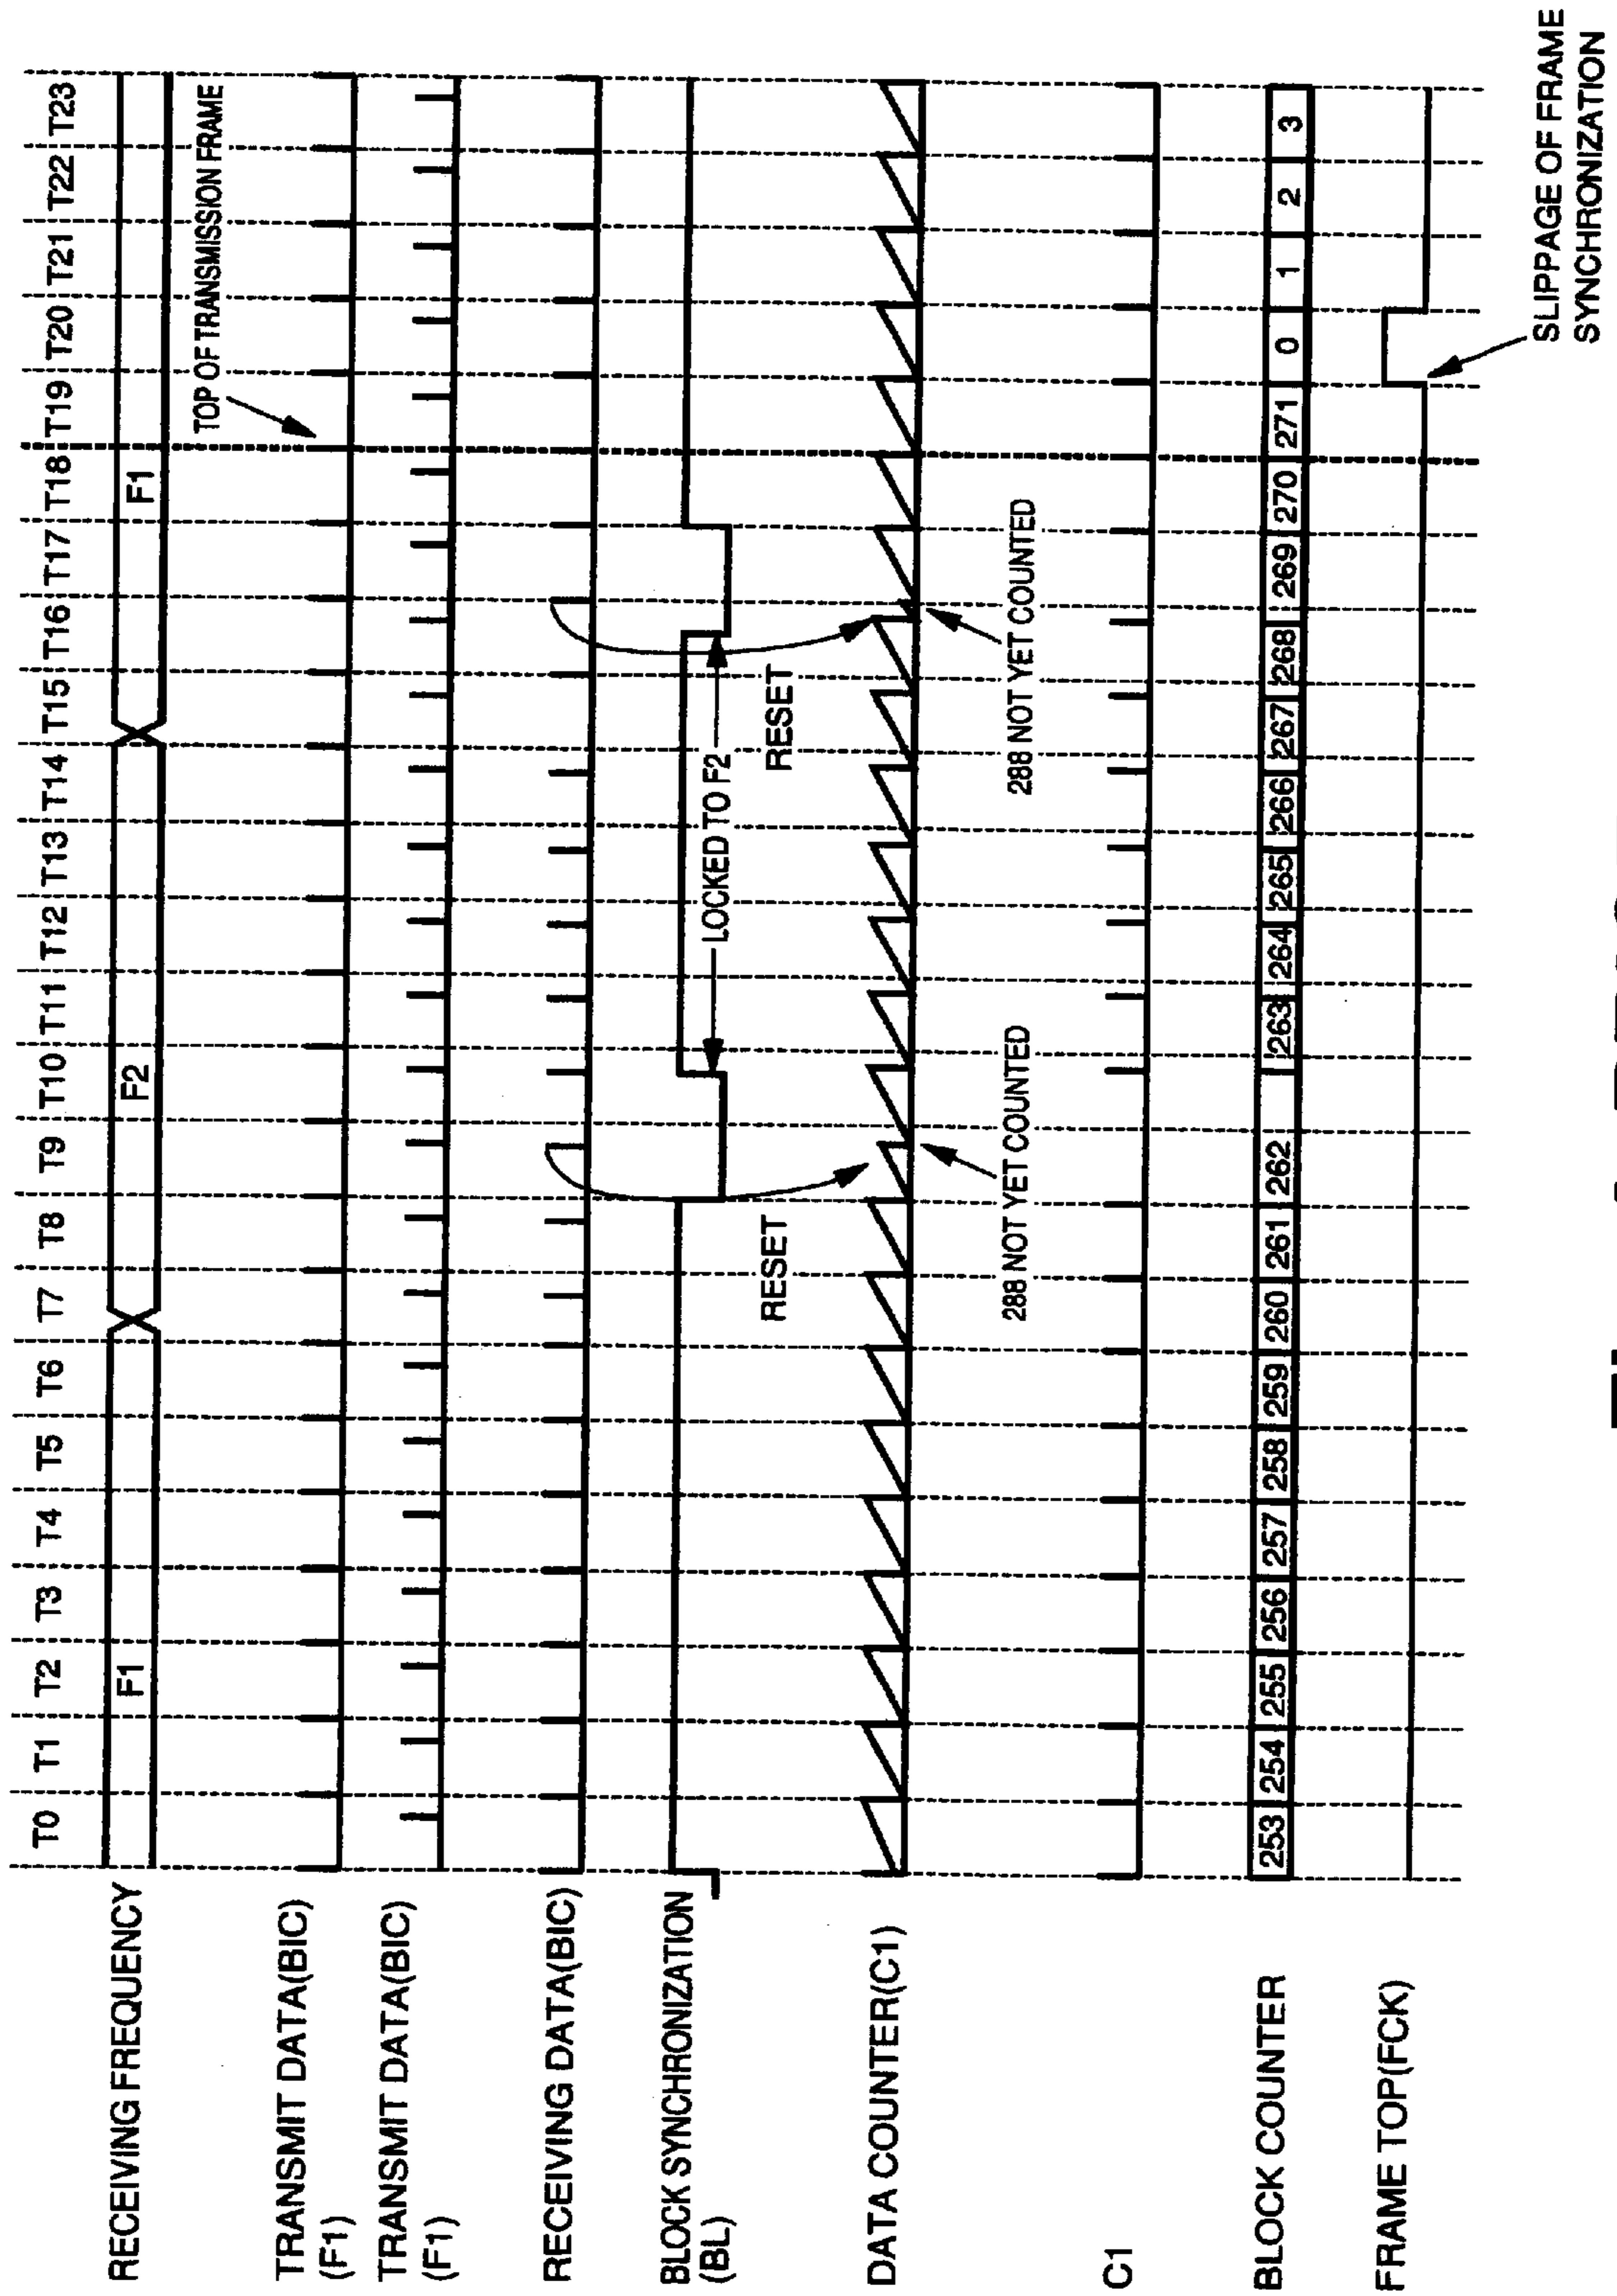 T0 T1 T2 T3 T4 T5 T6 T7 T8 T9 T10 T11 T12 T13 T14 T15 T16 T17 T18 T19 T20 T21 T22 T23
RECEIVING FREQUENCY
F1 F2 F1
TOP OF TRANSMISSION FRAME
TRANSMIT DATA(BIC)
(F1)
TRANSMIT DATA(BIC)
(F1)
RECEIVING DATA(BIC)
BLOCK SYNCHRONIZATION
(BL)
LOCKED TO F2
RESET
RESET
DATA COUNTER(C1)
288 NOT YET COUNTED
288 NOT YET COUNTED
C1
BLOCK COUNTER
253 254 255 256 257 258 259 260 261 262 263 264 265 266 267 268 269 270 271 0 1 2 3
FRAME TOP(FCK)
SLIPPAGE OF FRAME
SYNCHRONIZATION